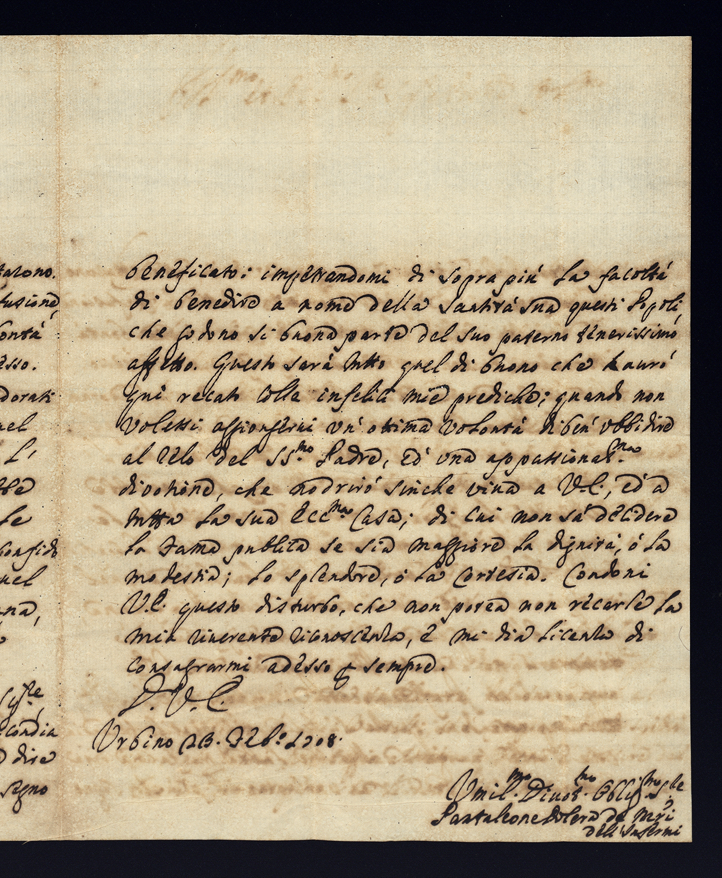 tarono.
fusione
bontà
esso.
dorati
uel
L'
tte
Le
confidi
uel
ana,
dire
segno
beneficato: impetrandomi di sopra più la facoltà
di benedire a nome della Santità sua questi Popoli,
che godono sì buona parte del suo paterno tenerissimo
affetto. Questo sarà tutto quel di buono che haurò
quì recato colle infelici mie prediche; quando non
volessi aggiongerui vn' ottima volontà di ben' vbbidire
al zelo del SS.mo Padre, ed' vna appassionat.ma
divotione, che nodrirò sinche viua a V.E., ed' a
tutta la sua Ecc.ma Casa; di cui non sà decidere
la Fama publica se sia maggiore la dignità, ò la
modestia; lo splendore, ò la Cortesia. Condoni
V.E. questo disturbo, che non potea non recarle la
mia riuerente riconoscenza, e mi dia licenza di
consagrarmi adesso e sempre.
D. V. E.
Vrbino 23. Feb.o 1708.
Vmil.mo Diuot.mo Obblig.mo S.re
Pantaleone Dolera de M.ri
degl'Infermi